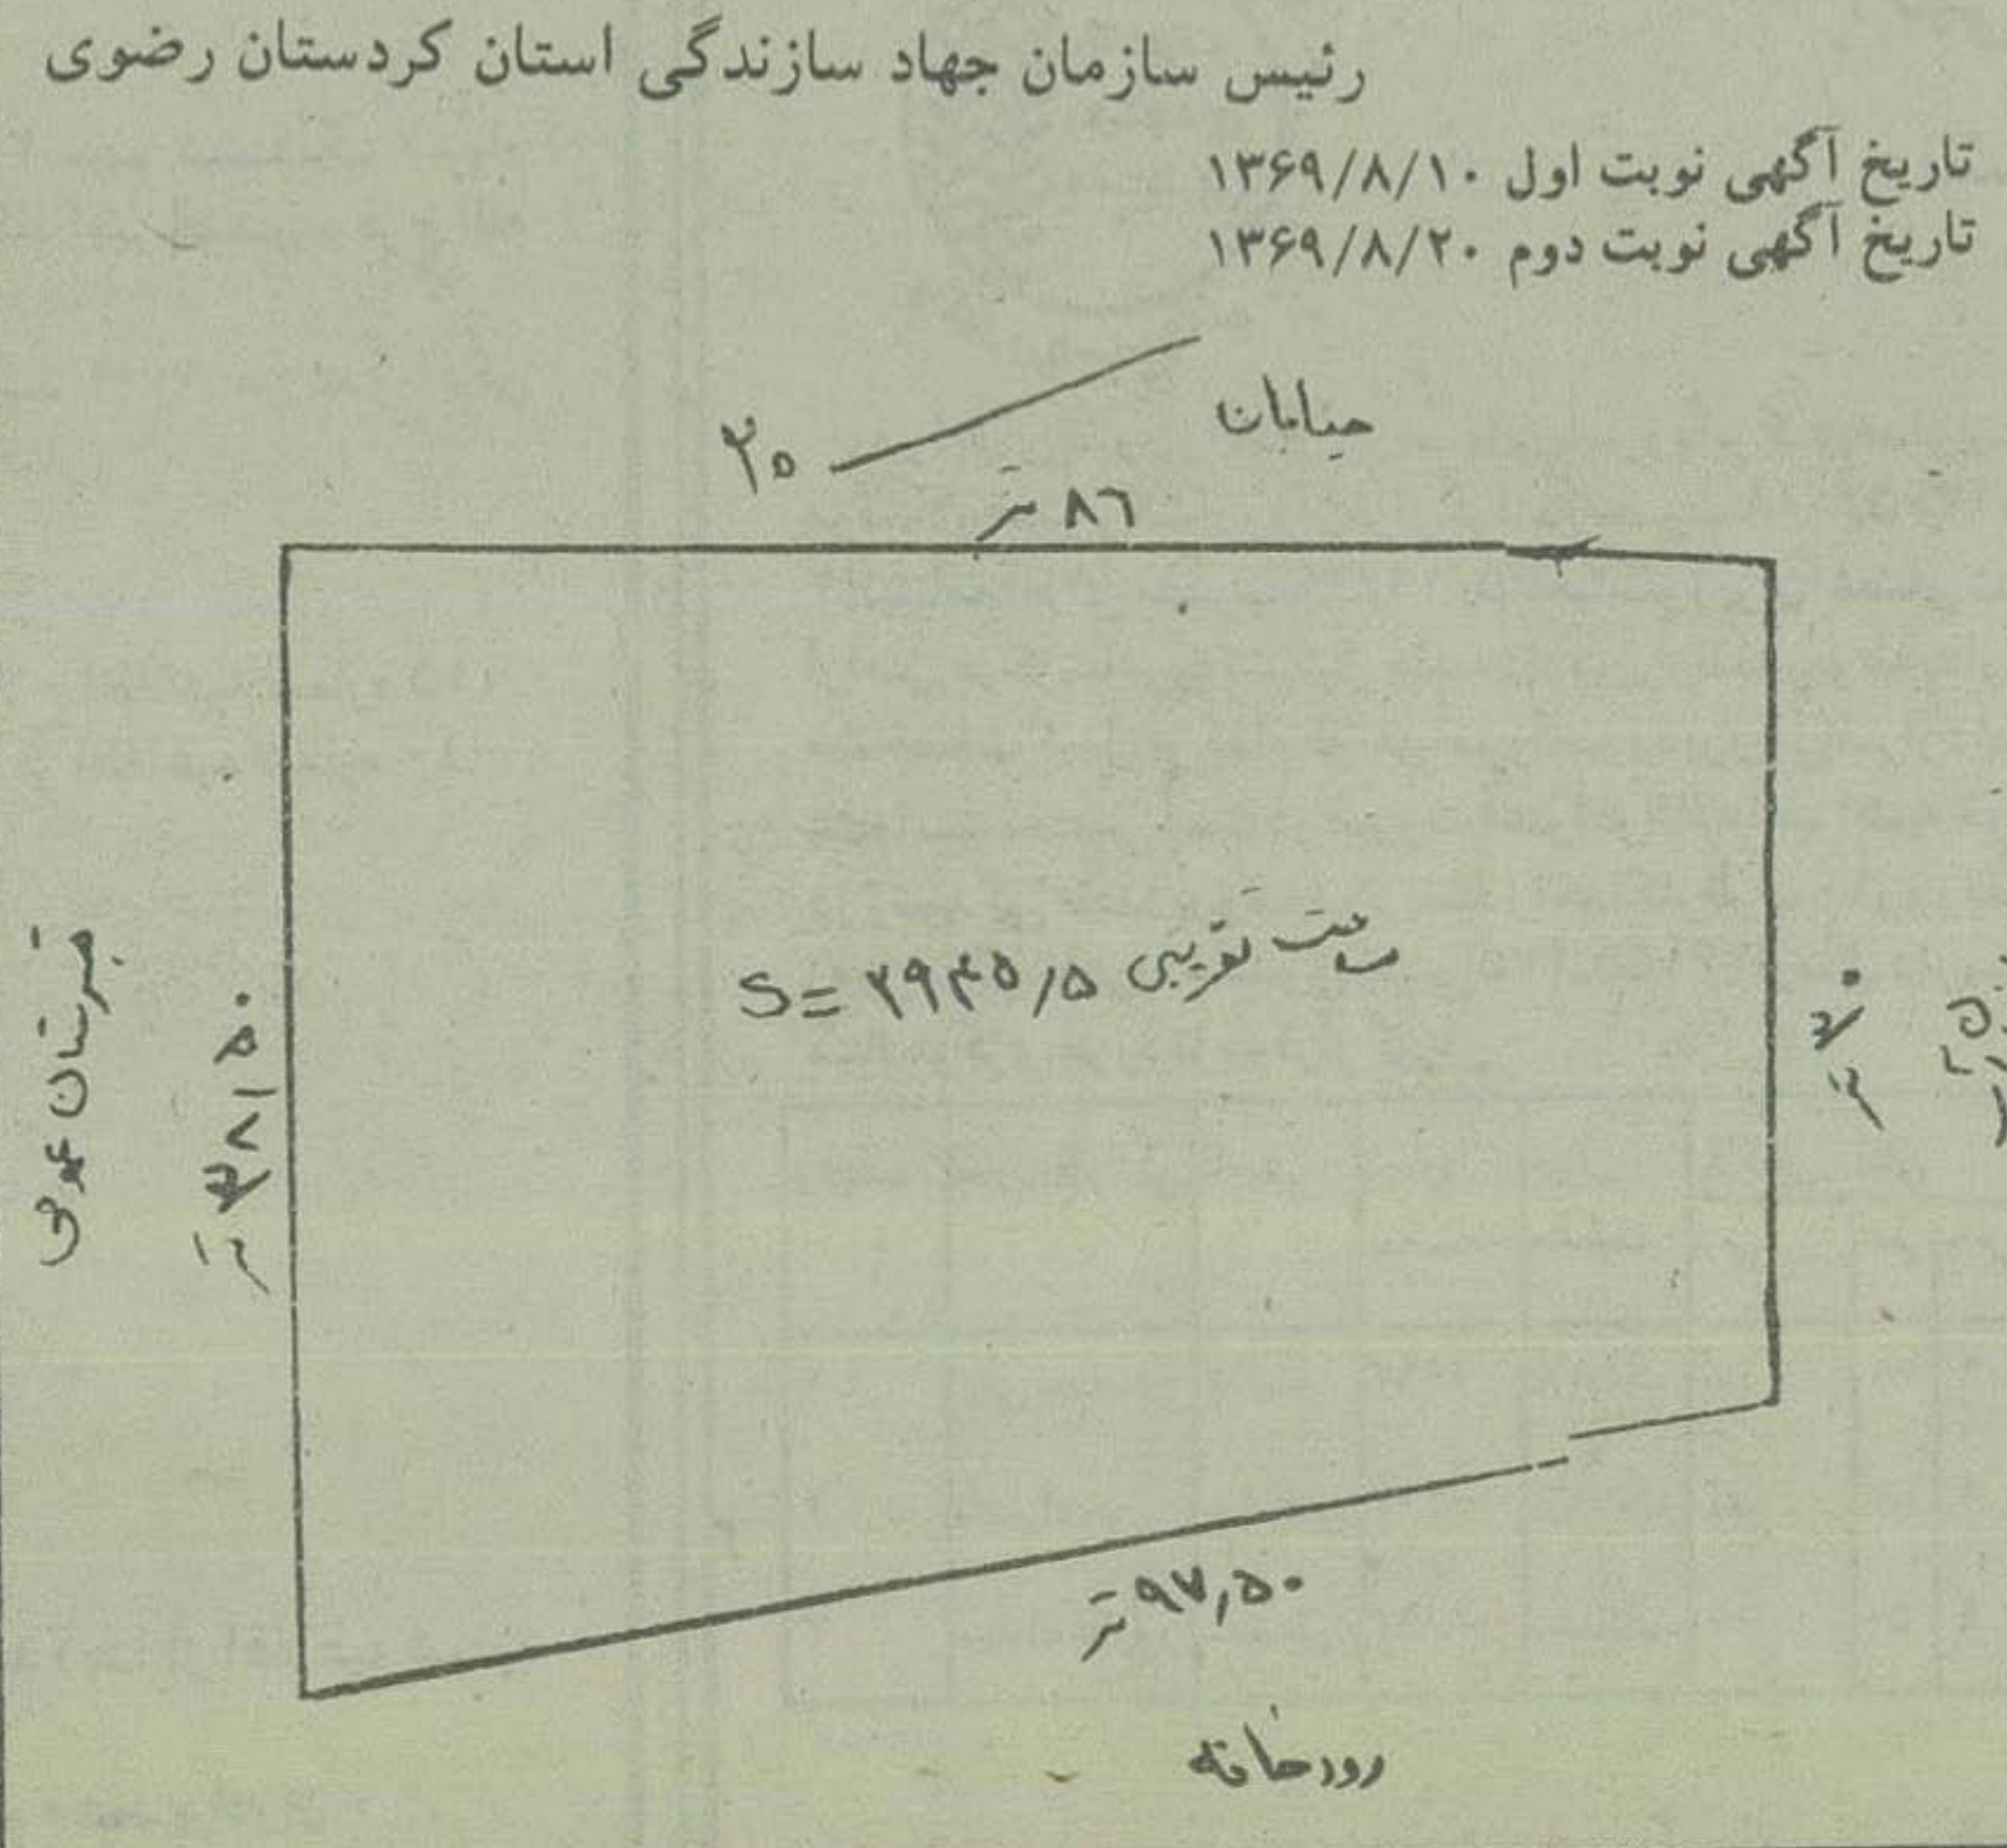 رئیس سازمان جهاد سازندگی استان کردستان رضوی
تاریخ آگهی نوبت اول ۱۳۶۹/۸/۱۰
تاریخ آگهی نوبت دوم ۱۳۶۹/۸/۲۰
خیابان
۸۶ متر
مساحت تقریبی S= ۲۹۴۵٫۵
۳۰ متر
قبرستان عمومی
۳۸٫۵۰ متر
۹۷٫۵۰ متر
رودخانه